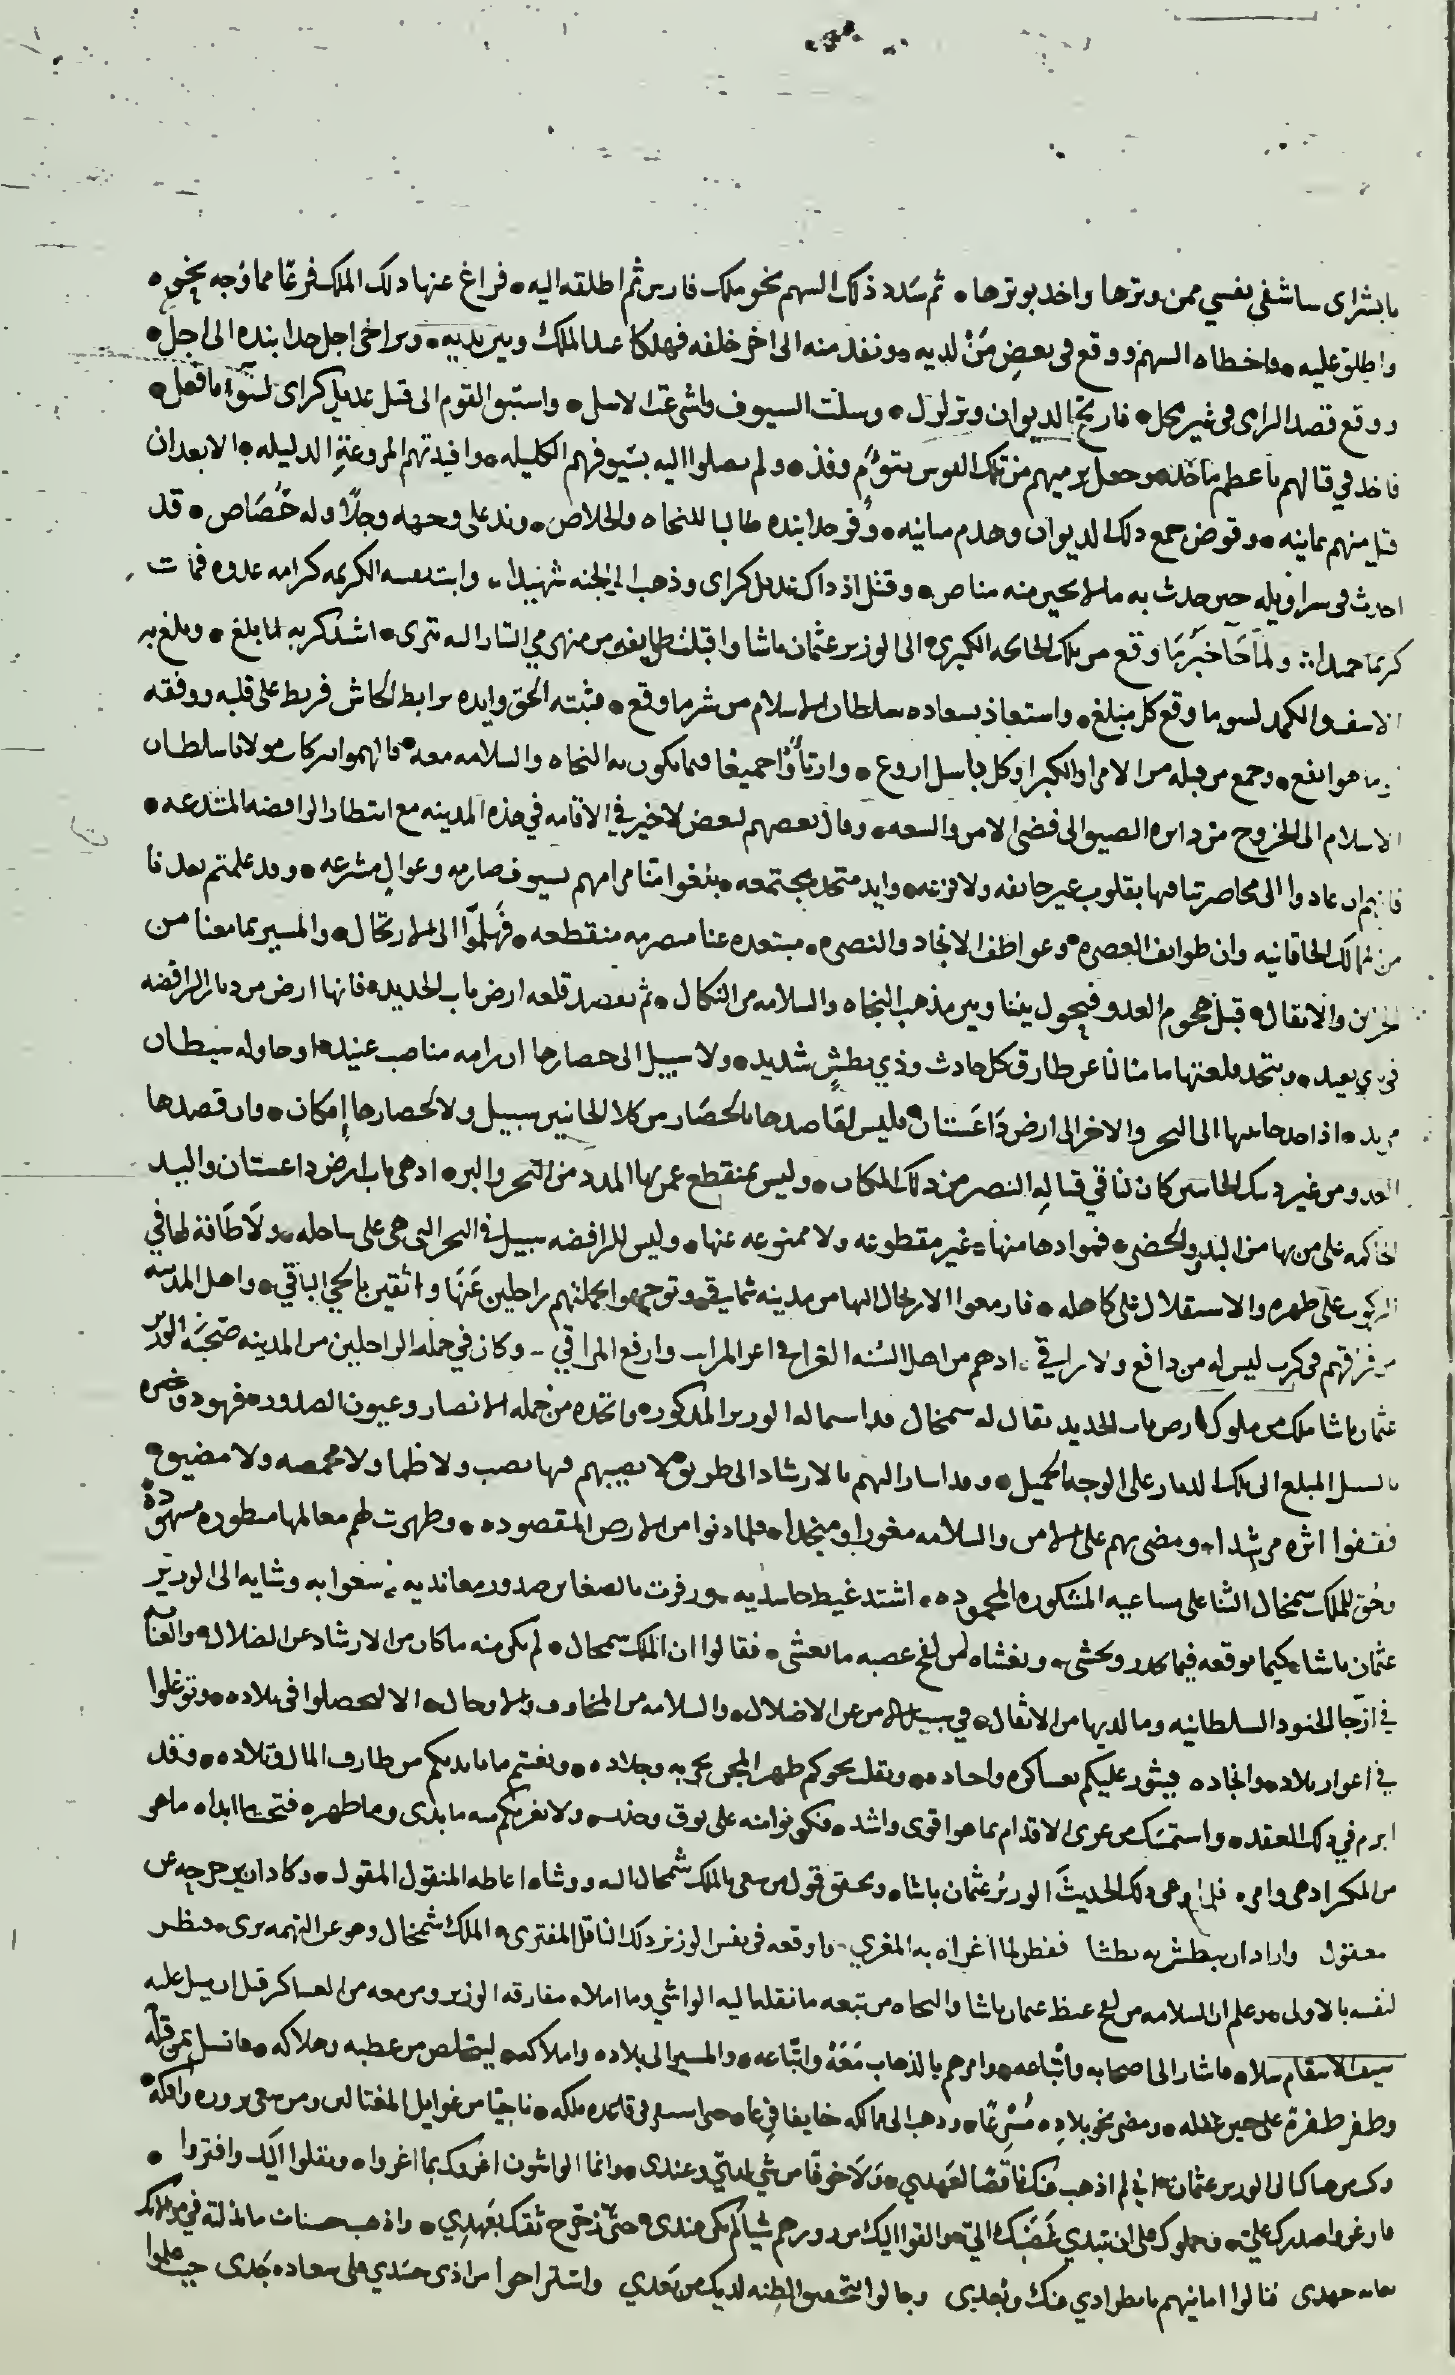 يا بشراى ساشفي نفسي ممن وترها واخذ بوترها • ثم سدد ذلك السهم نحو ملك فارس ثم اطلقه اليه • فراغ عنها ذلك الملك فرعًا مما وجه نحوه •
واطلق عليه • واخطاه السهم ووقع في بعض مَنْ لديه • ونفذ منه الى اخر خلفه فهلكا عند الملك وبين يديه • وتراخى اجل خدابنده الى اجل •
ووقع قصد الرامي في غير محل • فارتج الديوان وتزلزل • وسلت السيوف واشرعت الاسل • واستبق القوم الى قتل عديل كراى لسوء ما فعل •
فاخذ في قتالهم باعظم ماخذ • وجعل يرميهم من تلك القوس بتوءم وفذ • ولم يصلوا اليه بسيوفهم الكليله • وافيدتهم المروعة الذليله • الا بعد ان
قتل منهم ثمانيه • وقوض جمع ذلك الديوان وهدم مبانيه • وفر خدابنده طالبا للنجاه والخلاص • وند على وجهه وجلًا وله خُصَاص • قد
احدث في سراويله حين حدث به ما لا يحير منه مناص • وقتل اذ ذاك عديل كراى وذهب الى الجنه شهيدا • نفسه الكريمه كرامه عدوه فمات
كريما حميدا • ولما جا خبر ما وقع من تلك الجايحه الكبرى • الى الوزير عثمان باشا واقبلت طايفه من منهزمي التتار اليه تترى • اشتد كربه لما بلغ • وبلغ به
الاسف والكمد لسو ما وقع كل مبلغ • واستعاذ بسعاده سلطان الاسلام من شر ما وقع • فثبته الحق وايده برابط الجاش فربط على قلبه ووفقه
لما هو انفع • وجمع من قبله من الامرا والكبرا وكل باسل اروع • وارتأوا جميعا فيما يكون به النجاه والسلامه معه • فالهموا ببركات مولانا سلطان
الاسلام الى الخروج من دايره الضيق الى فضى الامن والسعه • وقال بعضهم لبعض لا خير في الاقامه في هذه المدينه مع انتظار الرافضه المبتدعه •
فانهم ان عادوا الى محاصرتنا فيها بقلوب غير خايفه ولا فزعه • وايد متحده مجتمعه • بلغوا منا مرامهم بسيوف صارمه وعوالٍ مشرعه • وقد علمتم بعدنا
من الممالك الخاقانيه وان طوايف العصره • وعواطف الانجاد والنصره • مبتعده عنا منصرمه منقطعه • فهلموا الى الارتحال • والمسير بما معنا من
الخزاين والاثقال • قبل هجوم العدو فيحول بيننا وبين مذهب النجاه والسلامه من النكال • ثم نقصد قلعه ارض باب الحديد • فانها ارض من ديار الرافضه
• ونتخذ قلعتها مامنا لنا عن طارق كل حادث وذي بطش شديد • ولا سبيل الى حصارها ان رامه مناصب عنيد • او حاوله شيطان
مريد • اذ احد جانبيها الى البحر والاخر الى ارض داغستان • فليس لقاصدها بالحصار من كلا الجانبين سبيل ولا لحصارها إمكان • وان قصدها
العدو من غير ذينك الجانبين كان لنا في قتاله النصر من ذلك المكان • وليس بمنقطع عمن بها المدد من البحر والبر • اذ هي باب ارض داغستان واليد
الحاكمه على من بها من البدو والحضر • فموادها منها • غير مقطوعه ولا ممنوعه عنها • وليس للرافضه سبيل في البحر التي هي على ساحله • ولا طاقة لها في
الركوب على ظهره والاستقلال على كاهله • فازمعوا الارتحال اليها من مدينه شماخي • وتوجهوا بجملتهم راحلين عنها واثقين بالحي الباقي • واهل المدينه
من فراقهم في كرب ليس له من دافع ولا راقي • اذ هم من اهل السنه الغرا في اعز المراتب وارفع المراقي • وكان في جمله الراحلين من المدينه صحبة الوزير
عثمان باشا ملك من ملوك ارض باب الحديد يقال له سمخال قد استماله الوزير المذكور • واتخذه من جمله الانصار وعيون الصدور • فهو ذو خبره
بالسبل المبلغ الى تلك الديار على الوجه الجميل • وقد اشار اليهم بالارشاد الى طريق لا يصيبهم فيها نصب ولا ظما ولا مخمصه ولا مضيق •
فقفوا اثره مرشدا • ومضى بهم على الامن والسلامه مغورا ومنجدا • فلما دنوا من الارض المقصوده • وظهرت لهم معالمها منظوره مشهودة
وحُق للملك سمخال الثنا على مساعيه المشكوره المحموده • اشتد غيظ حاسديه • وزفرت بالضغاين صدور معانديه • سعوا به وشايه الى الوزير
عثمان باشا • كيما يوقعه فيما يحذر ويخشى • ويغشاه من لفح غضبه ما يغشى • فقالوا ان الملك سمخال • لم يكن منه ما كان من الارشاد عن الضلال • والعنايه
في ازجا الجنود السلطانيه وما لديها من الاثقال • في سبيل من عن الاضلال • والسلامه من المخاوف والاوحال • الا ليحصلوا في بلاده • وتوغلوا
في اغوار بلاده وانجاده • فيثور عليكم بعساكره واجناده • ويقلب نحوكم ظهر المجن بحربه وجلاده • ويغتنم ما بايديكم من طارف المال وتلاده • وقد
ابرم في ذلك العقد • واستمسك من عرى الاقدام بما هو اقوى واشد • فكونوا منه على توق وحذر • ولا يغرنكم منه ما بدى وما ظهر • فتحت ما ابداه ما هو
من المكر ادهى وامر • فلما وعى ذلك الحديث الوزير عثمان باشا • وتحقق قول من سعى بالملك شمخال اليه ووشا • اغاظه المنقول المقول • وكاد ان يخرجه عن
معقول واراد ان يبطش به بطشا ففطن لما اغراه به المغري • واوقعه في نفس الوزير ذلك الناقل المفترى • الملك شمخال وهو عن التهمه بري • فنظر
لنفسه بالاولى • وعلم ان السلامه من لفح غيظ عثمان باشا والنجاه من تبعه ما نقله اليه الواشي وما املاه مفارقه الوزير ومن معه من العساكر قبل ان يسل عليه
سيف الانتقام سلا • فاشار الى اصحابه واتباعه • وامرهم بالذهاب معه واتباعه • والمسير الى بلاده واملاكه • ليتخلص من عطبه وهلاكه • فانسل عمن قبله
وطفر طفرة على حين غفله • ومضى نحو بلاده مُسْرِعًا • وذهب الى ممالكه خايفا فزعا • حتى استقر في قاعده ملكه • ناجيًا من غوايل المغتالين ومن سعى بزوره وافكه •
وكتب من هناك الى الوزير عثمان • اني لم اذهب عنك ناقضا لعهدى • ولا خوفًا من شي لديّ وعندى • وانما الواشون اغروك بما اغروا • ونقلوا اليك وافتروا •
فاوغروا صدرك علي • وحملوك على ان تبتدي بغضبك اليّ • والقوا اليك من زورهم شيا لم يكن عندى • حتى زحزح ثقتك بعهدي • واذهب حسنات ما بذلته في
غايه جهدى فنالوا امانيهم بانطرادي عنك وبُعدى وحالوا لديك من بَعدي واستراحوا من اذى حسدي على سعاده جَدى حيث علموا